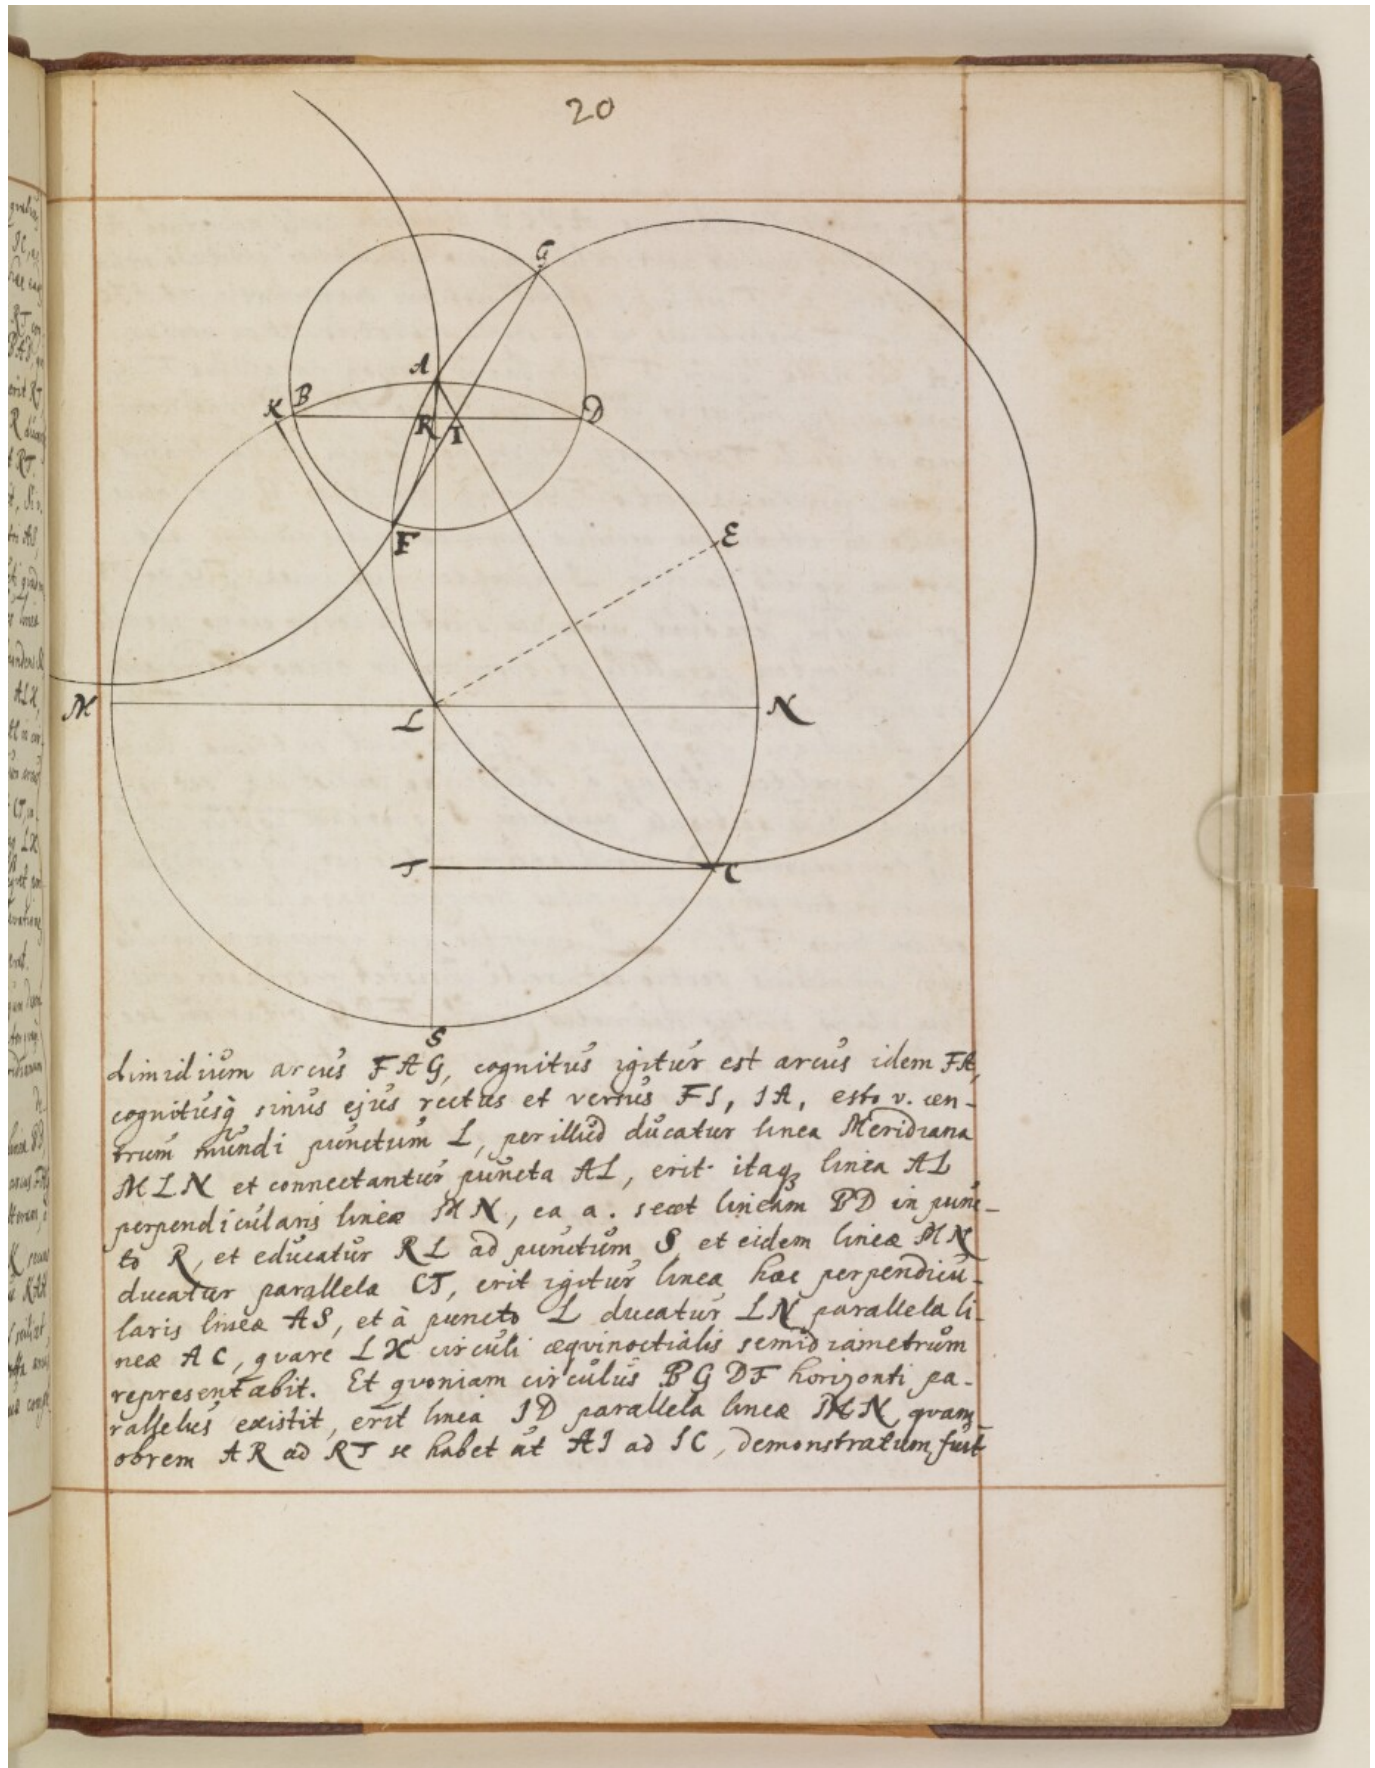 20
G
A
K B D
R I
F
E
M L N
T C
S
dimidium arcus FAG, cognitus igitur est arcus idem FA,
cognitusq̃ sinus ejus rectus et versus FI, IA, esto v. cen-
trum mundi punctum L, per illud ducatur linea Meridiana
MLN et connectantur puncta AL, erit itaqꝫ linea AL
perpendicularis lineæ MN, ea a. secet lineam BD in punc-
to R, et educatur RL ad punctum S et eidem lineæ MN
ducatur parallela CT, erit igitur linea hæc perpendicu-
laris lineæ AS, et à puncto L ducatur LN parallela li-
neæ AC, quare LK circuli æqvinoctialis semidiametrum
representabit. Et qvoniam circulus BGDF horizonti pa-
rallelus existit, erit linea ID parallela lineæ MN, qvam-
obrem AR ad RT se habet ut AI ad IC, demonstratum fuit